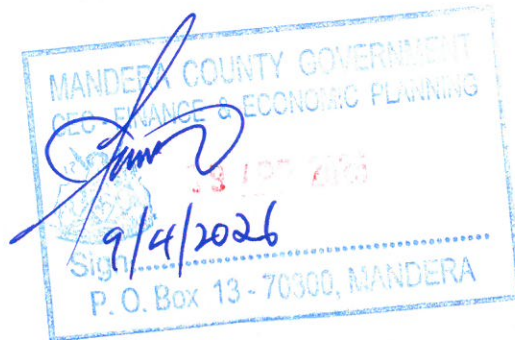 MANDERA COUNTY GOVERNMENT
CEC - FINANCE & ECONOMIC PLANNING
9/4/2026
Sign
P. O. Box 13 - 70300, MANDERA